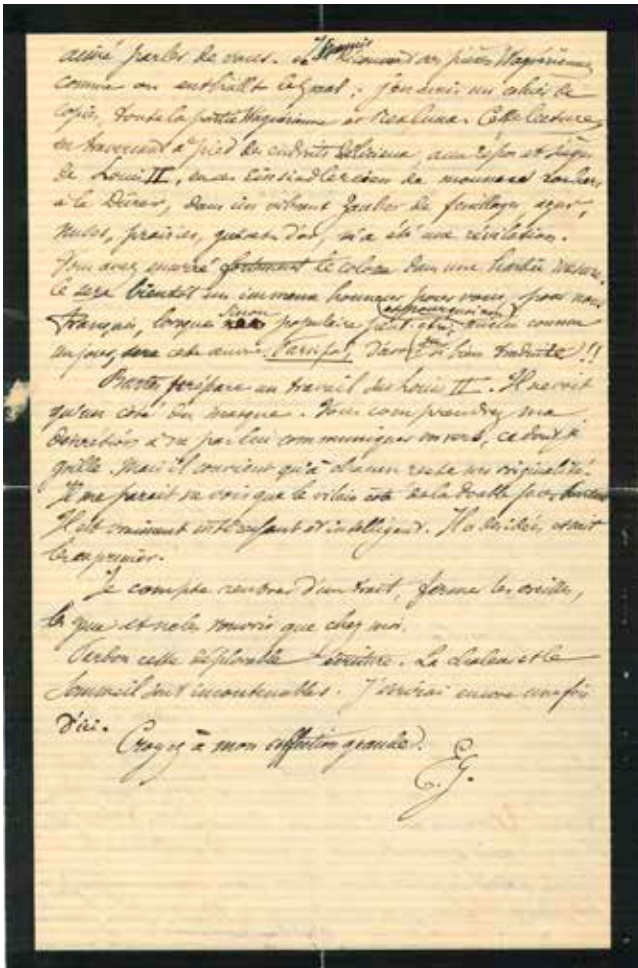 aussi parler de vous. J'acquis comme ces pièces Wagnériennes
comme on enthrall : j'en avais un cahier de
copie, toute la partie Wagnérienne et Cette lecture,
en traversant à pied des endroits délicieux, aux repos et sièges
de Louis II, en ces de
à la Dürer, dans un vibrant de feuillages, azur,
nues, prairies, d'or, m'a été une révélation.
Vous avez enserré fortement le colosse dans une hardie mesure.
Ce sera bientôt un immense honneur pour vous, pour nous
Français, lorsque sinon populaire peut être, aussi connue
un jour, sera cette œuvre, Parsifal, si bien traduite !!
prépare un travail sur Louis II. Il ne voit
qu'un côté du masque. Vous comprendrez ma
discrétion à ne pas lui communiquer vos vers, ce dont je
grille. Mais il convient qu'à chacun reste son originalité.
Il me paraît ne voir que le vilain côté de la double face,
Il est vraiment intéressant et intelligent. Il a des idées, et sait
les exprimer.
Je compte rentrer d'un trait, fermer les oreilles,
les yeux et ne les rouvrir que chez moi.
Pardon cette déplorable écriture. La chaleur et le
sommeil sont incontenables. J'écrirai encore une fois
d'ici.
Croyez à mon affection grande.
E. G.